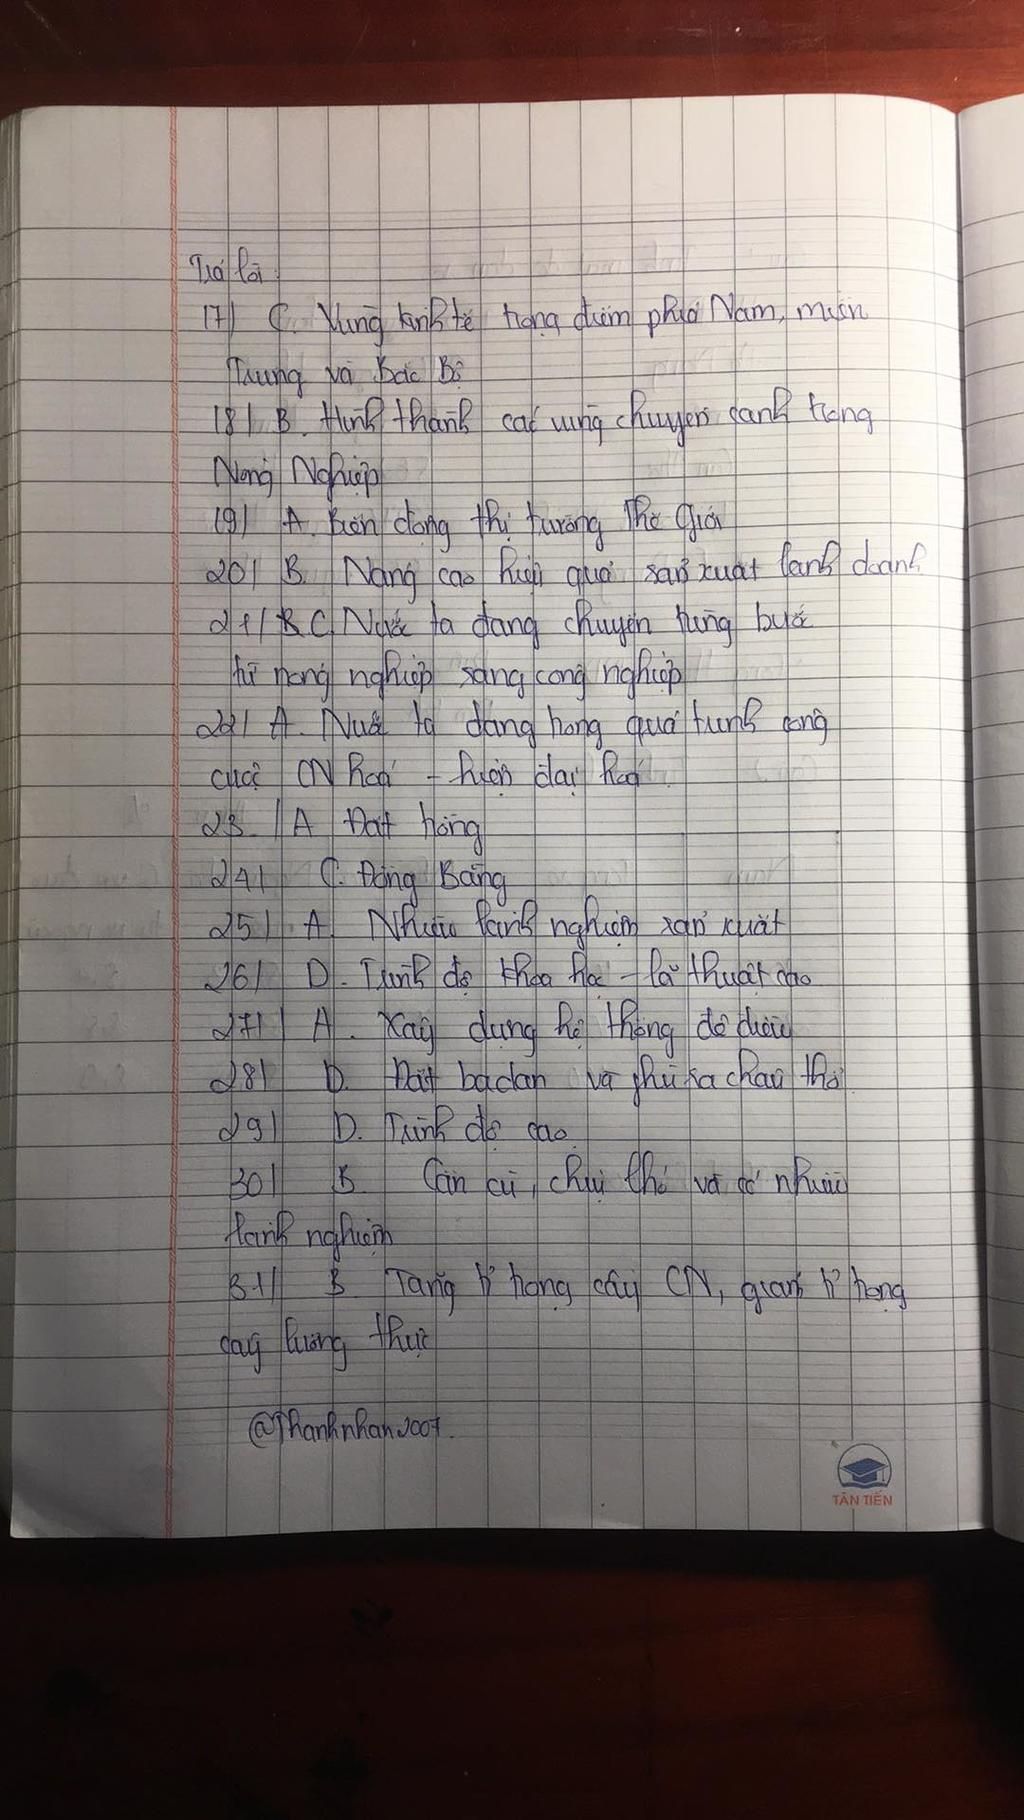 Trả lời
17/ C. Vùng kinh tế trọng điểm phía Nam, miền
Trung và Bắc Bộ
18/ B. Hình thành các vùng chuyên canh trong
Nông Nghiệp
19/ A. Biến động thị trường Thế Giới
20/ B. Nâng cao hiệu quả sản xuất kinh doanh
21/ B C. Nước ta đang chuyển từng bước
từ nông nghiệp sang công nghiệp
22/ A. Nước ta đang trong quá trình công
cuộc CN hoá - hiện đại hoá
23 / A Đất trồng
24/ C. Đồng Bằng
25/ A. Nhiều kinh nghiệm sản xuất
26/ D. Trình độ khoa học - kĩ thuật cao
27/ A. Xây dựng hệ thống đê điều
28/ D. Đất badan và phù sa châu thổ
29/ D. Trình độ cao
30/ B. Cần cù, chịu khó và có nhiều
kinh nghiệm
31/ B Tăng tỉ trọng cây CN, giảm tỉ trọng
cây lương thực
@Thanhnhan2007.
TÂN TIẾN